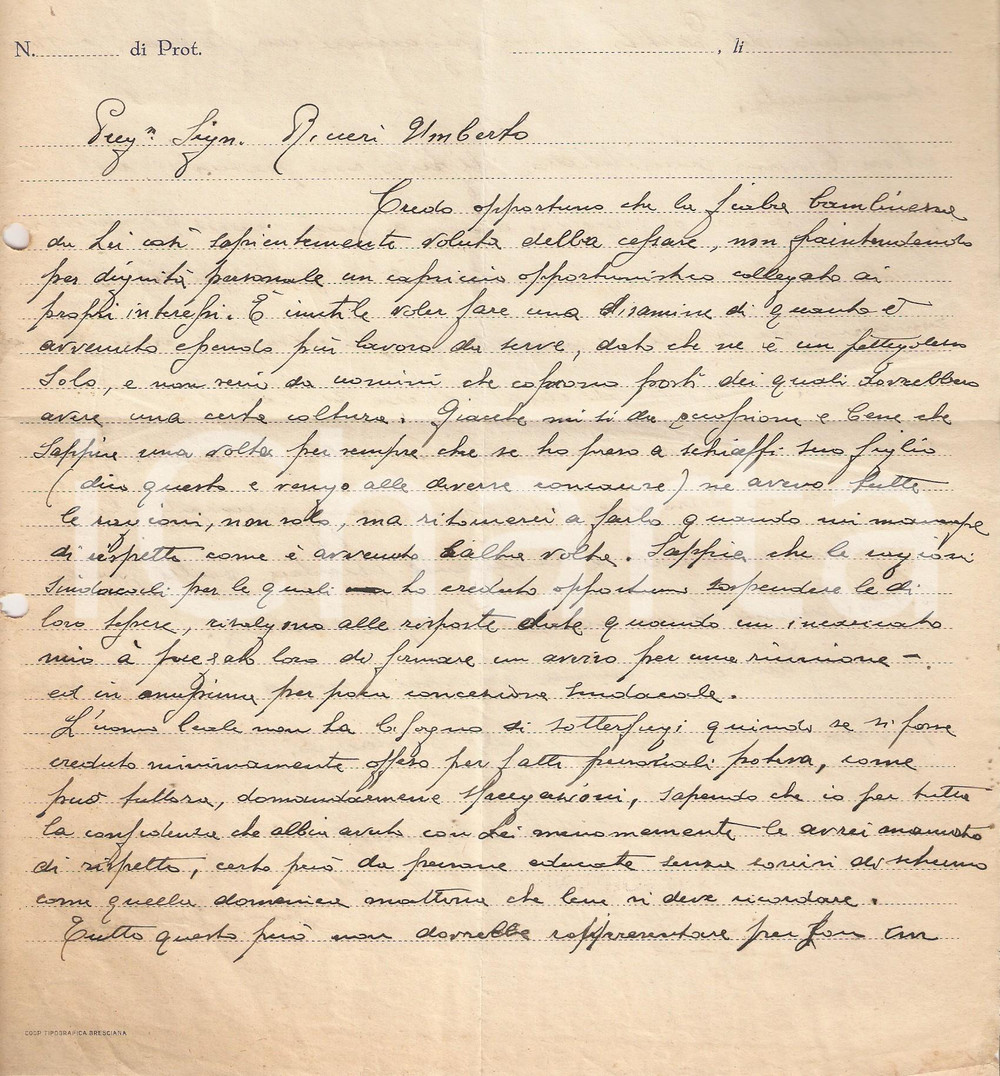 N. di Prot. , li
Preg.n Sign. Riveri Umberto
Credo opportuno che la fiaba bambinesca
da Lei così sapientemente voluta debba cessare, non fraintendendo
per dignità personale un capriccio opportunistico collegato ai
propri interessi. È inutile voler fare una disamina di quanto è
avvenuto essendo più lavoro da serve, dato che ne è un pettegolezzo
solo, e non verà da uomini che coprono posti dei quali dovrebbero
avere una certa coltura. Giacché mi si da occasione e bene che
sappia una volta per sempre che se ho preso a schiaffi suo figlio
(dico questo e vengo alle diverse concause) ne avevo tutte
le ragioni, non solo, ma ritornerei a farlo quando mi mancasse
di rispetto come è avvenuto altre volte. Sappia che le ragioni
sindacali per le quali ho creduto opportuno sospendere le di
loro tessere, risalgono alle risposte date quando un incaricato
mio à pregato loro di firmare un avviso per una riunione –
ed in per poca concezione sindacale.
L'uomo leale non ha bisogno di sotterfugi quindi se si fosse
creduto minimamente offeso per fatti personali poteva, come
può tuttora, domandarmene spiegazioni, sapendo che io per tutta
la confidenza che abbia avuto con Lei menomamente le avrei mancato
di rispetto, certo però da persone educate senza sorrisi di scherno
come quella domenica mattina che bene si deve ricordare.
Tutto questo però non dovrebbe rappresentare per un
COOP. TIPOGRAFICA BRESCIANA